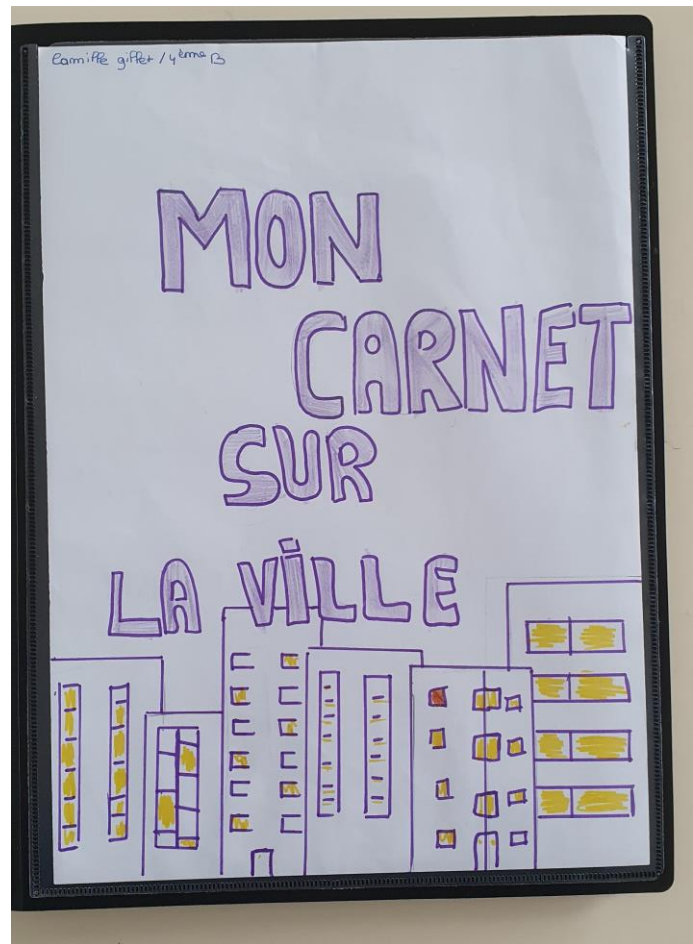 Camille giffet / 4ème B
MON
CARNET
SUR
LA VILLE